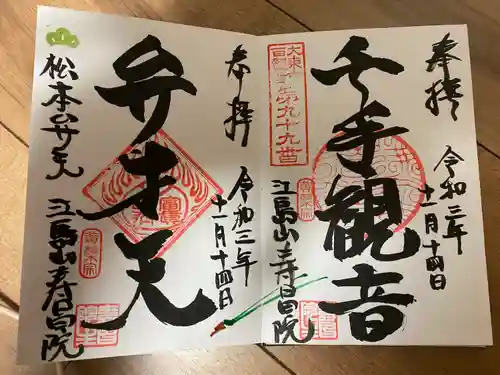 奉拝
令和三年
十一月十四日
千手観音
大東
百観音第九十九番
江島山寿昌院
奉拝
令和三年
十一月十四日
弁才天
松本弁天
江島山寿昌院